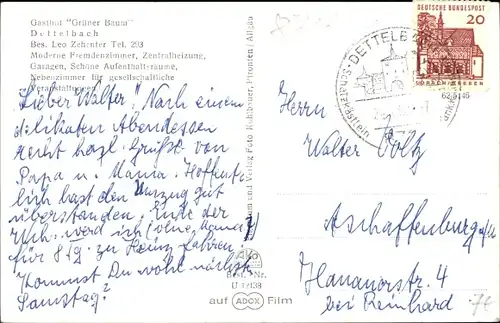 Gasthof "Grüner Baum"
Dettelbach
Bes. Leo Zehnter Tel. 293
Moderne Fremdenzimmer, Zentralheizung,
Garagen, Schöne Aufenthaltsräume,
Nebenzimmer für gesellschaftliche
Veranstaltungen
Lieber Walter! Nach einem
delikaten Abendessen
recht herzl. Grüße von
Papa u. Mama. Hoffent-
lich hast den Umzug gut
überstanden. Ende der
Wch. werd ich (ohne Mama)
für 8 Tg. zu Heinz fahren.
Kommst Du wohl nächst.
Samstag?
und Verlag Foto Kuhbauer, Pfronten / Allgäu
Best. Nr.
U 17138
auf ADOX Film
DETTELBACH
DEUTSCHE BUNDESPOST
20
LORSCH HESSEN
Herrn
Walter Voltz
Aschaffenburg/M
Hanauerstr. 4
bei Reinhard